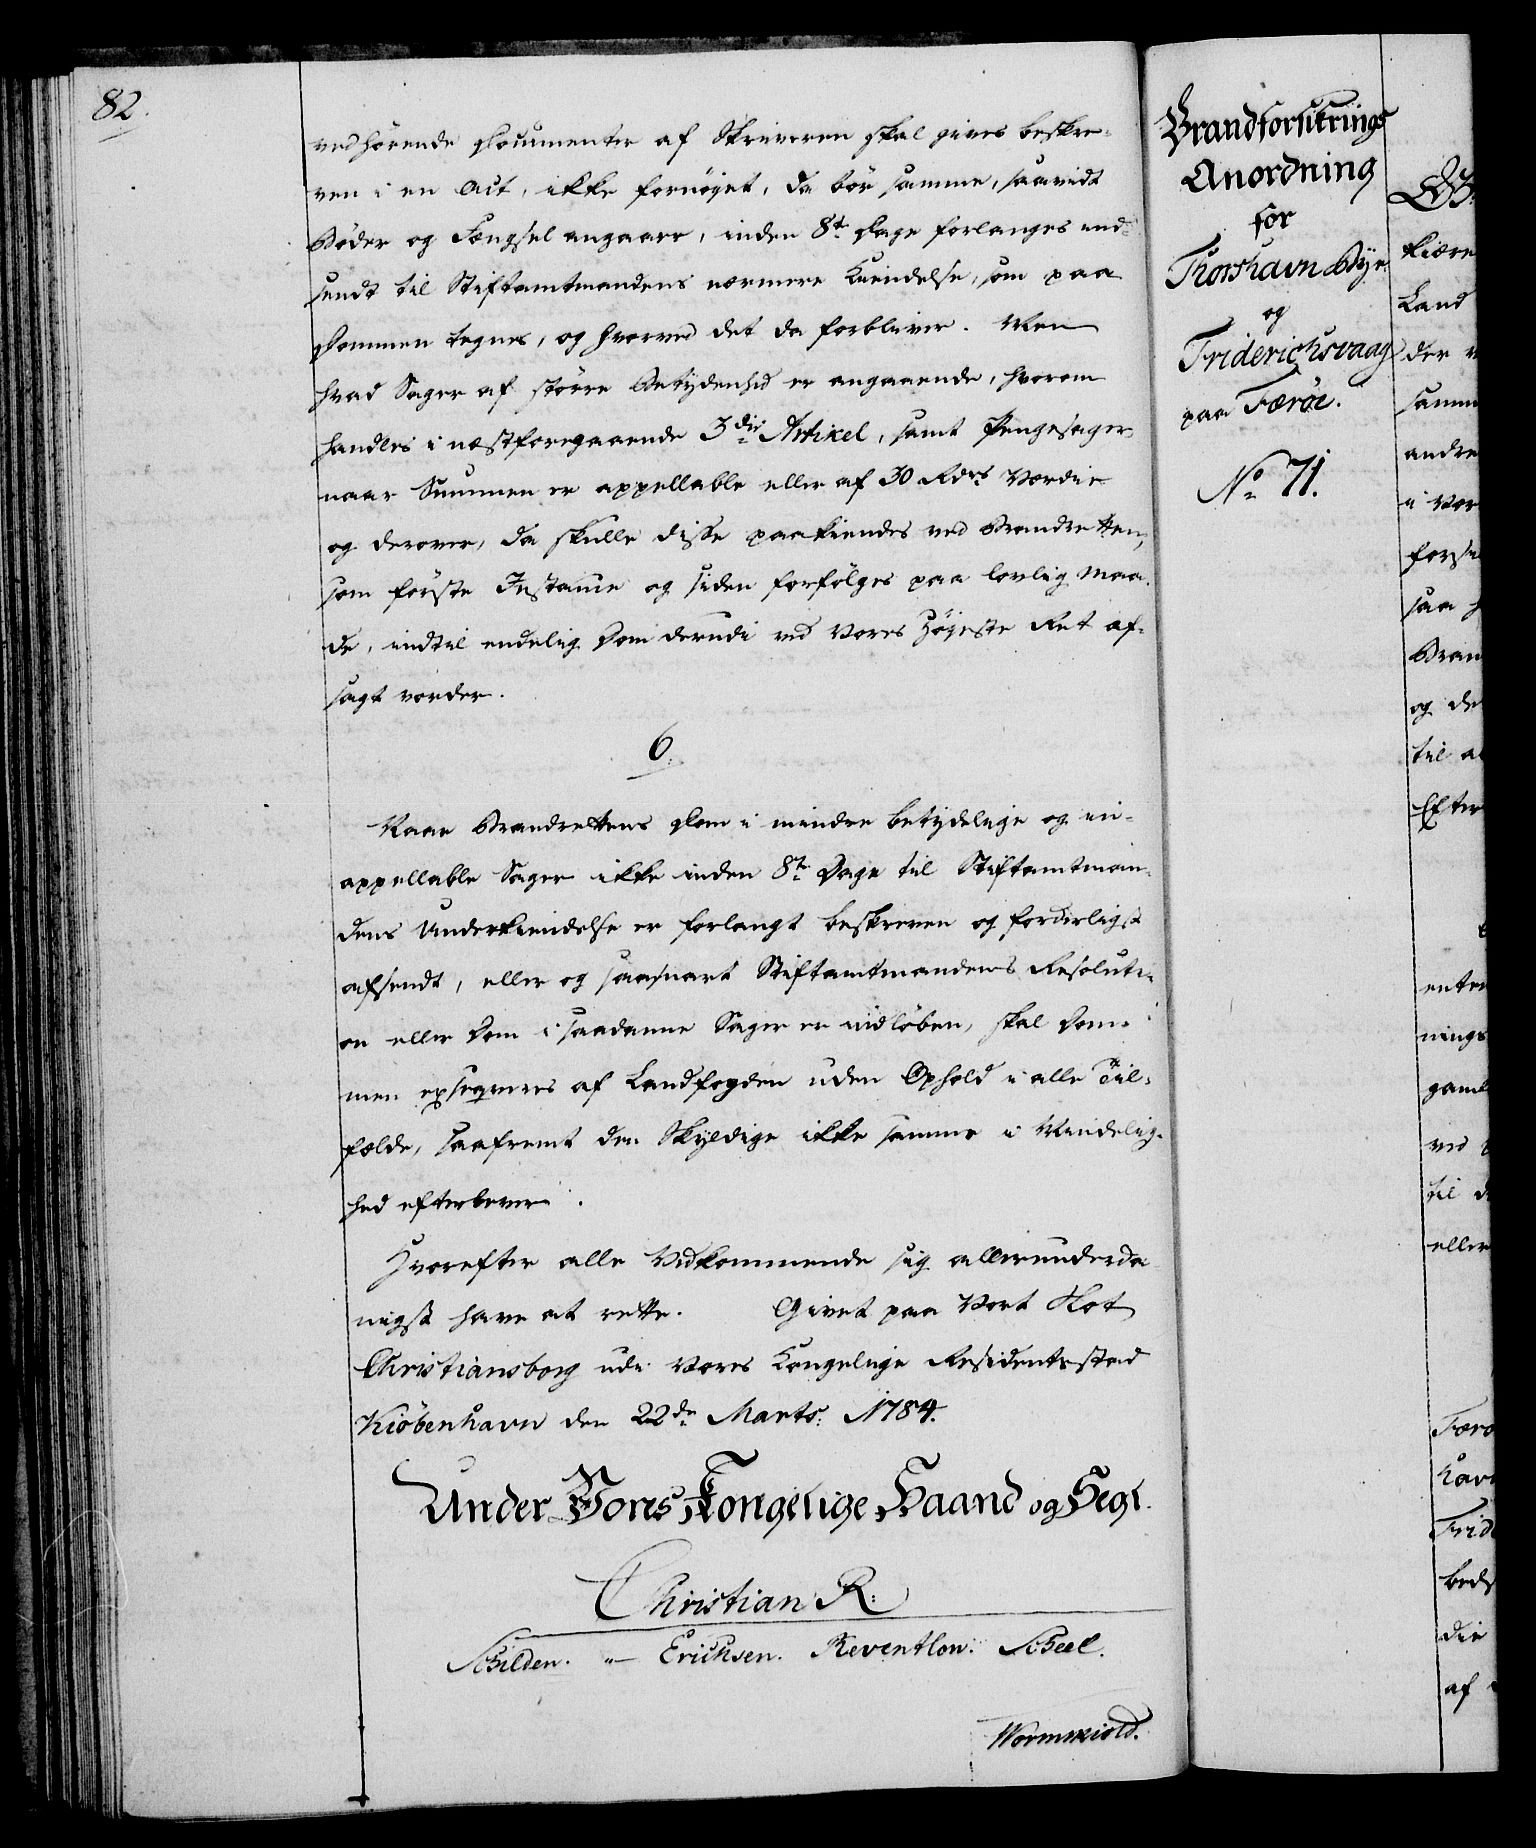 82.
ved hörende Documenter af Skriveren skal gives beskre-
ven i en Act, ikke fornöyet, da bör samme, saavidt
Böder og Fængsel angaaer, inden 8te Dage forlanges ind-
sendt til Stiftamtmandens nærmere Kiendelse, som paa
Dommen tegnes, og hvorved det da forbliver. Men
hvad Sager af större Betydenhed er angaaende, hvorom
handles i næstforegaaende 3die Artikel, samt Pengesager
naar Summen er appellable eller af 30 Rdrs Værdie
og derover, da skulle disse paakiendes ved Brandretten,
som förste Instance og siden forfölges paa lovlig Maa-
de, indtil endelig Dom derudi ved Vores Höyeste Ret af-
sagt vorder.
6.
Naar Brandrettens Dom i mindre betydelige og in-
appellable Sager ikke inden 8te Dage til Stiftamtman-
dens Underkiendelse er forlangt beskreven og forderligst
afsendt, eller og saasnart Stiftamtmandens Resoluti-
on eller Dom i saadanne Sager er indlöben, skal Dom-
men exseqveres af Landfogden uden Ophold i alle Til-
fælde, saafremt den Skyldige ikke samme i Mindelig-
hed efterlever.
Hvorefter alle Vedkommende sig allerunderda
nigst have at rette. Givet paa Vort Slot
Christiansborg udi Vores Kongelige Residentsstad
Kiöbenhavn den 22de Marts. 1784.
Under Vores Kongelige Haand og Segl.
Christian R:
Schilden. Erichsen. Reventlow. Scheel.
Wormskiold.
Brandforsikrings
Anordning
for
Thorshavn Bye
og
Friderichsvaag
paa Færöe.
No 71.
kiære
Land
der
samm
andre
i Vor
forsi
saa
Bran
og de
til al
Efter
enten
nings
gaml
ved
til d
eller
Færo
havn
Frid
beds
die
af